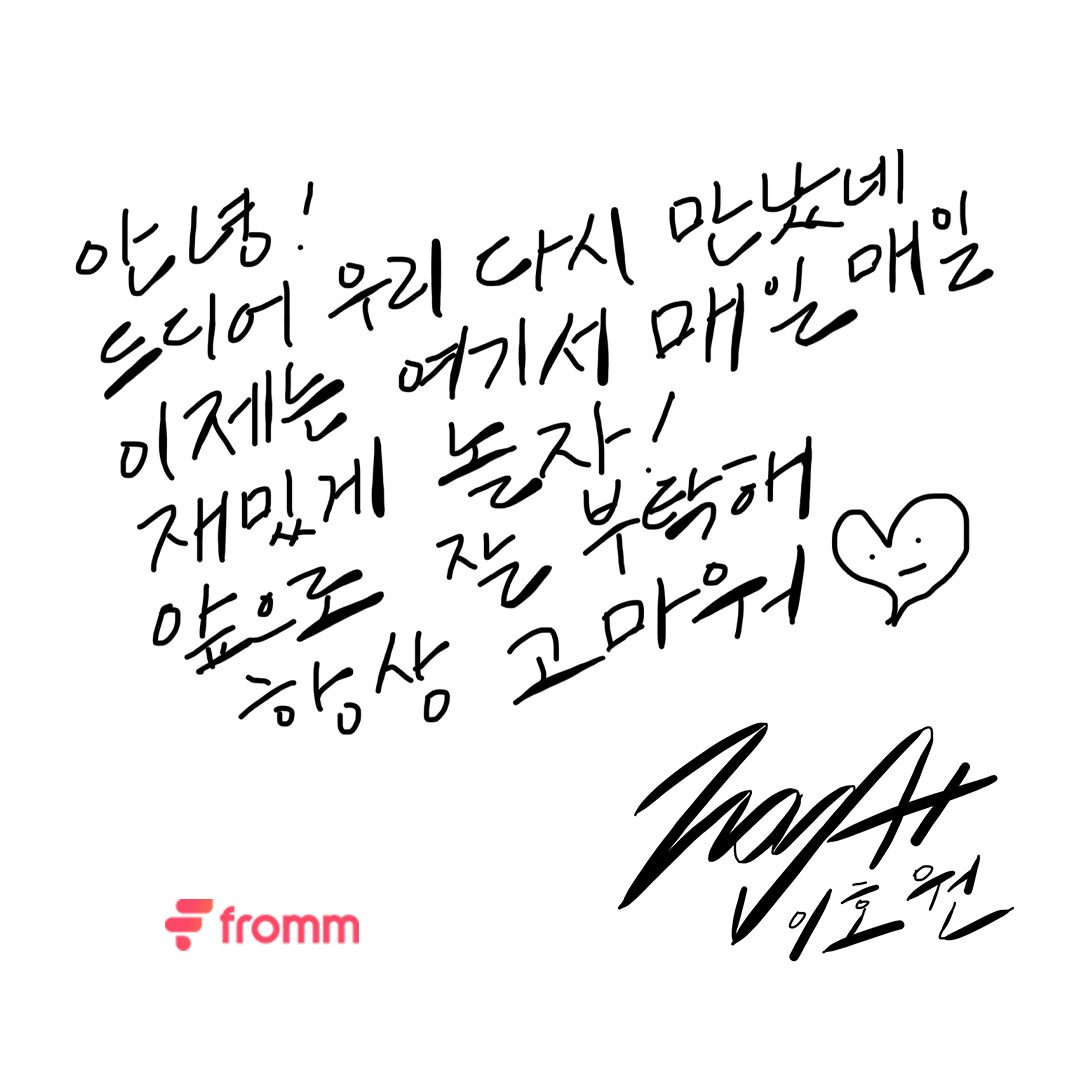 안녕!
드디어 우리 다시 만났네
이제는 여기서 매일매일
재밌게 놀자!
앞으로 잘 부탁해
항상 고마워
HoyA
이호원
fromm